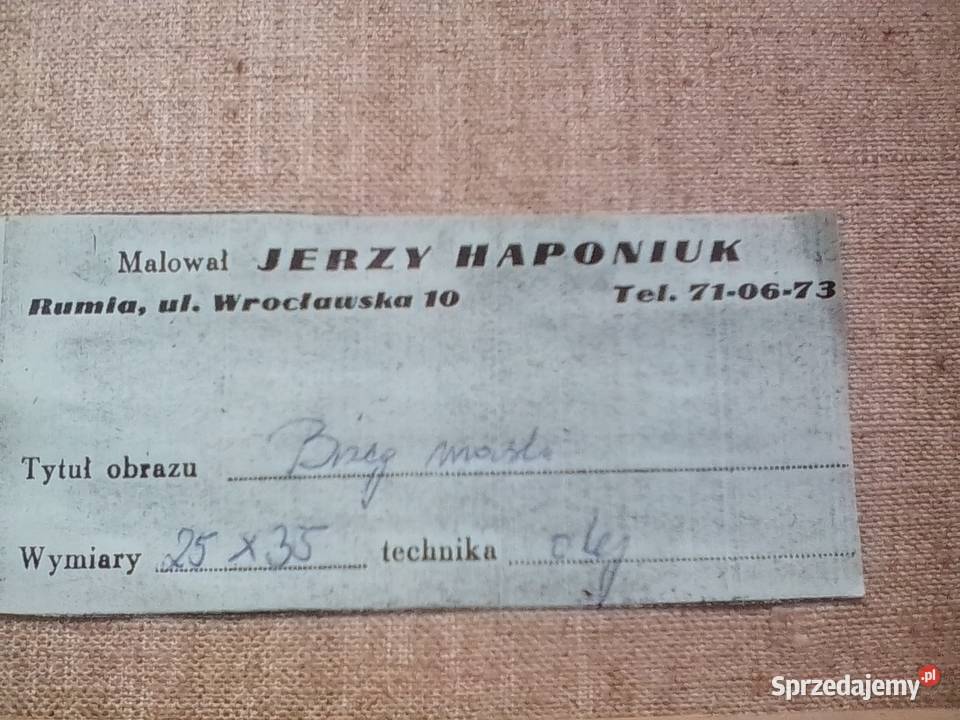 Malował JERZY HAPONIUK
Rumia, ul. Wrocławska 10 Tel. 71-06-73
Tytuł obrazu Brzeg morski
Wymiary 25 x 35 technika olej
Sprzedajemy.pl